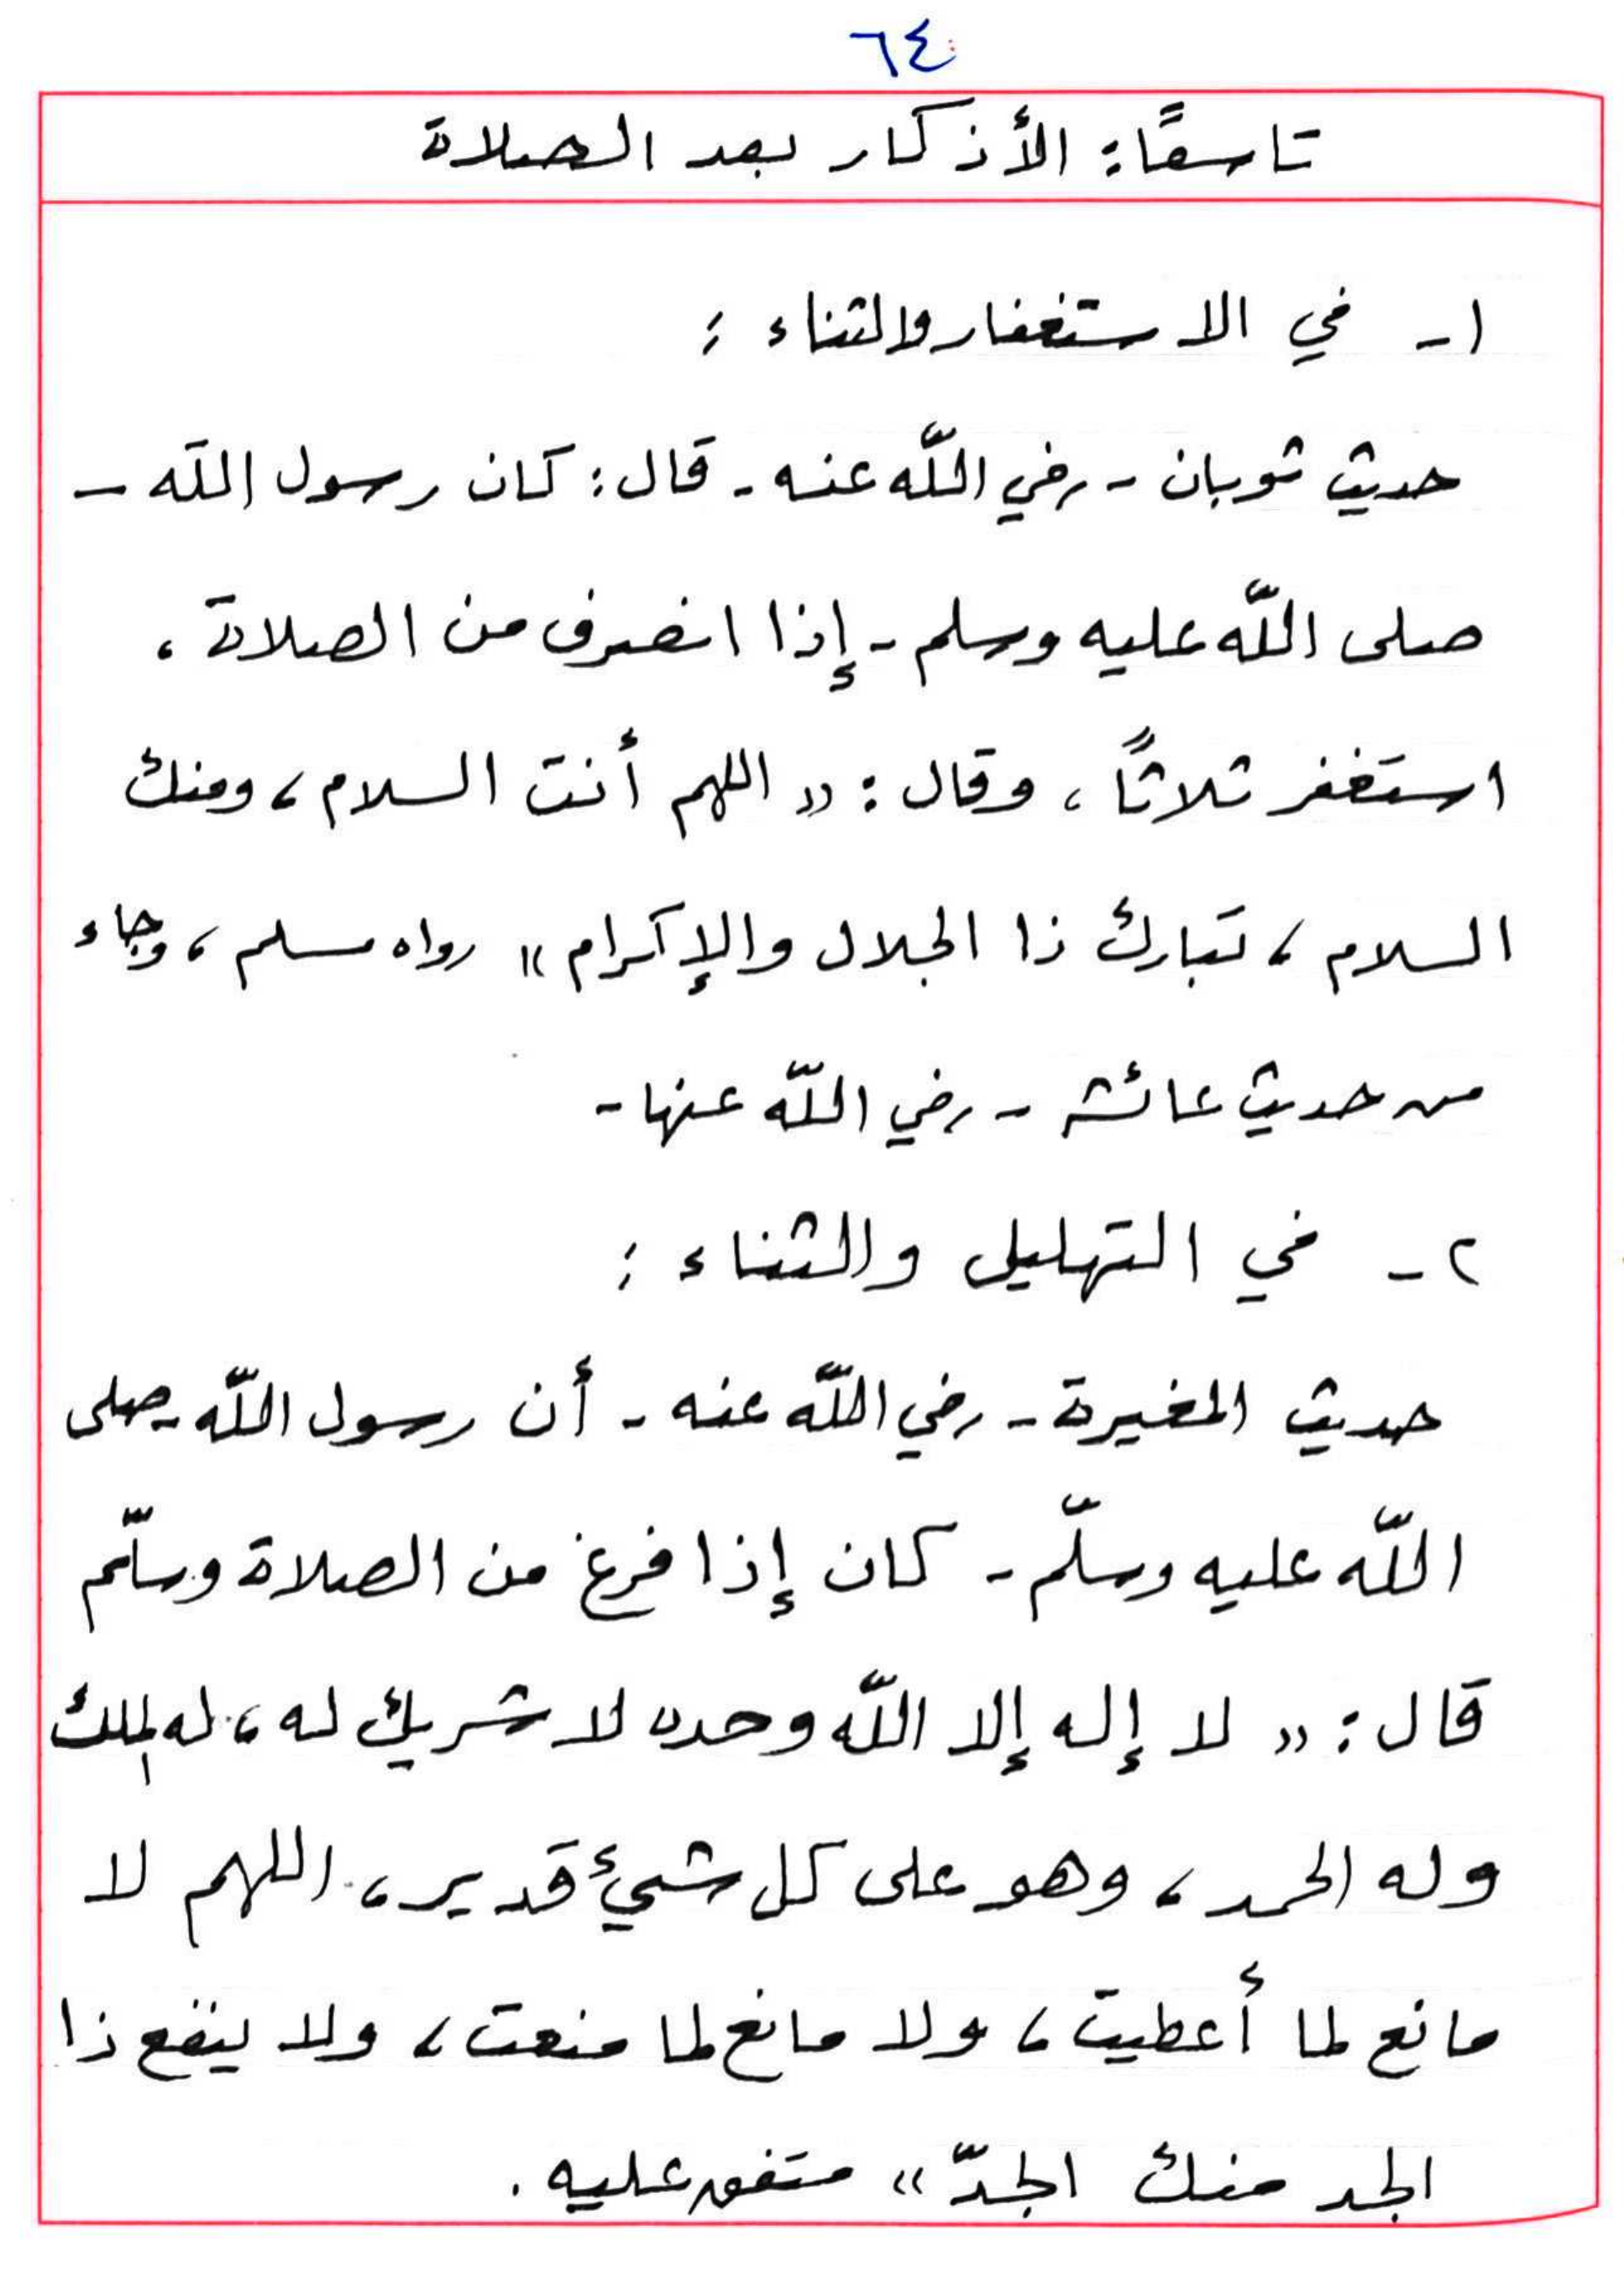 ٦٤
تاسعًا: الأذكار بعد الصلاة
١- في الاستغفار والثناء :
حديث ثوبان - رضي اللّه عنه - قال: كان رسول الله -
صلى اللّه عليه وسلم - إذا انصرف من الصلاة ،
استغفر ثلاثًا ، وقال : « اللهم أنت السلام ، ومنك
السلام ، تبارك ذا الجلال والإكرام » رواه مسلم ، وجاء
من حديث عائشه - رضي اللّه عنها -
٢- في التهليل والثناء :
حديث المغيرة - رضي اللّه عنه - أن رسول اللّه - صلى
اللّه عليه وسلّم - كان إذا فرغ من الصلاة وسلّم
قال : « لا إله إلا اللّه وحده لا شريك له ، له الملك
وله الحمد ، وهو على كل شيئ قدير ، اللهم لا
مانع لما أعطيت ، ولا مانع لما منعت ، ولا ينفع ذا
الجد منك الجدّ » متفق عليه .